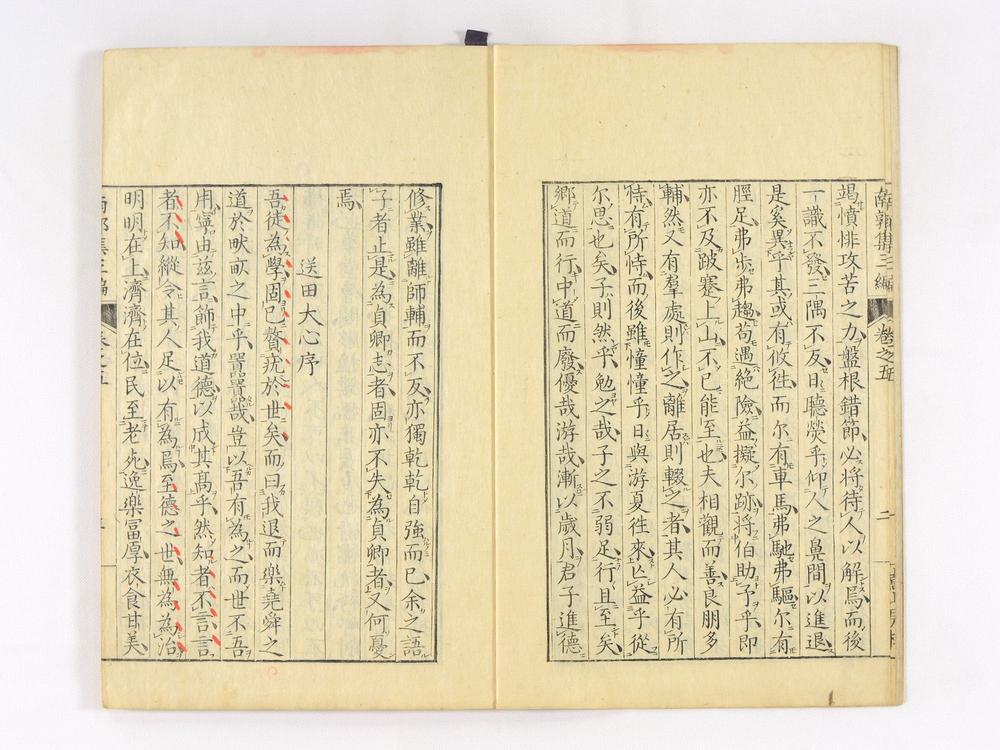 南郭集三編 卷之五 二
竭憤悱攻苦之力盤根錯節必將待人以解焉而後
一識不發三隅不反日聽熒乎仰人之鼻間以進退
是奚異乎其或有攸徃而尔有車馬弗馳弗驅尔有
脛足弗步弗趨苟遇絕險益擬尔跡將伯助予乎即
亦不及跛蹇上山不已能至也夫相觀而善良朋多
輔然又有羣處則作之離居則輟之者其人必有所
恃有所恃而後雖憧憧乎日與游夏徃來亡益乎從
尔思也矣子則然乎勉之哉子之不弱足行且至矣
鄉道而行中道而廢優哉游哉漸以歲月君子進德
修業雖離師輔而不反亦獨乾乾自強而已余之語
子者止是為貞卿志者固亦不失為貞卿者又何憂
焉
送田大心序
吾徒為學固已贅疣於世矣而曰我退而樂堯舜之
道於畎畝之中乎嚚嚚哉豈以吾有為之而世不吾
用寧由茲言飾我道德以成其高乎然知者不言言
者不知縱令其人足以有為焉至德之世無為為治
明明在上濟濟在位民至老死逸樂冨厚衣食甘美
南郭集三編 卷之五